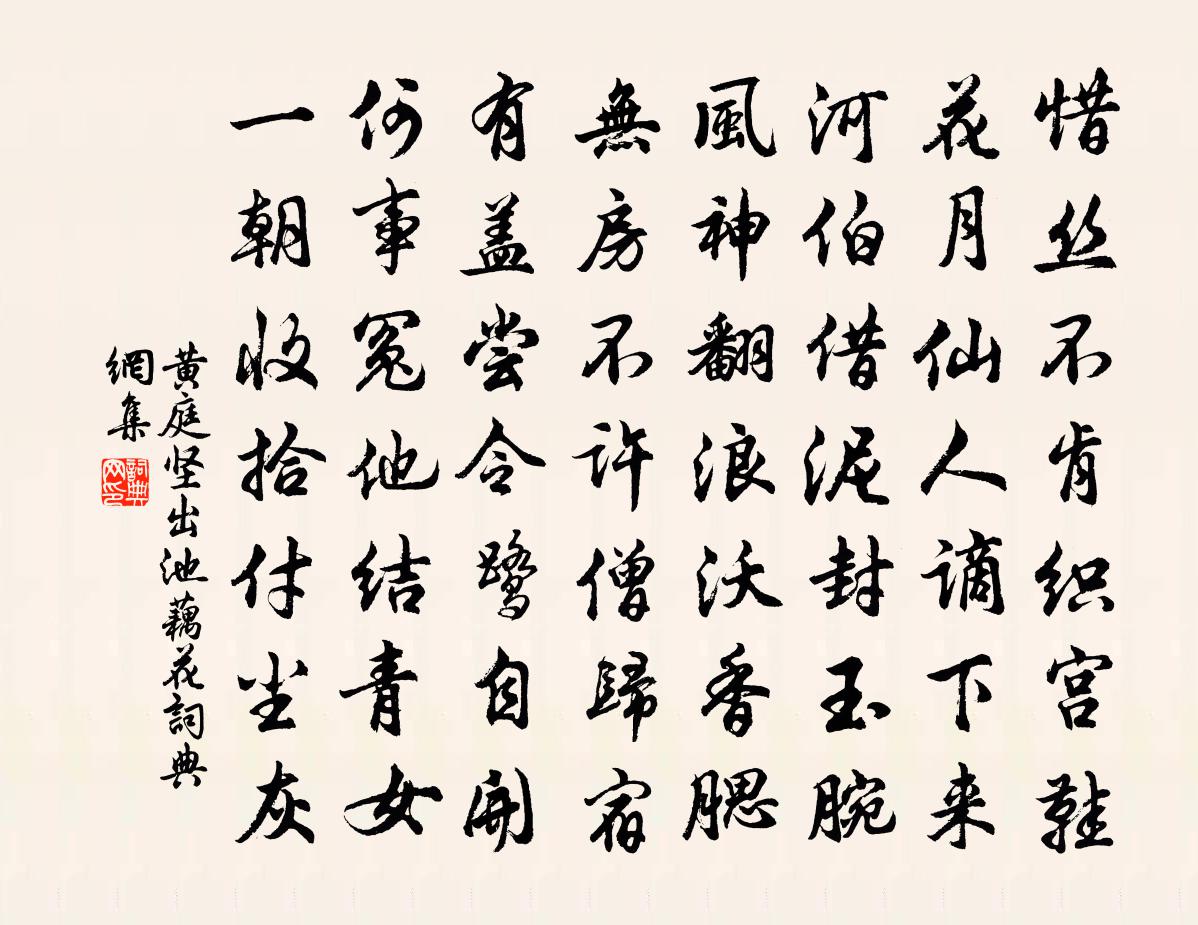 惜丝不肯织宫鞋
花月仙人谪下来
河伯借泥封玉腕
風神翻浪沃香腮
無房不许僧歸宿
有盖尝令鹭自開
何事冤他结青女
一朝收拾付尘灰
黄庭坚出池藕花詞典
網集
詞典
网印